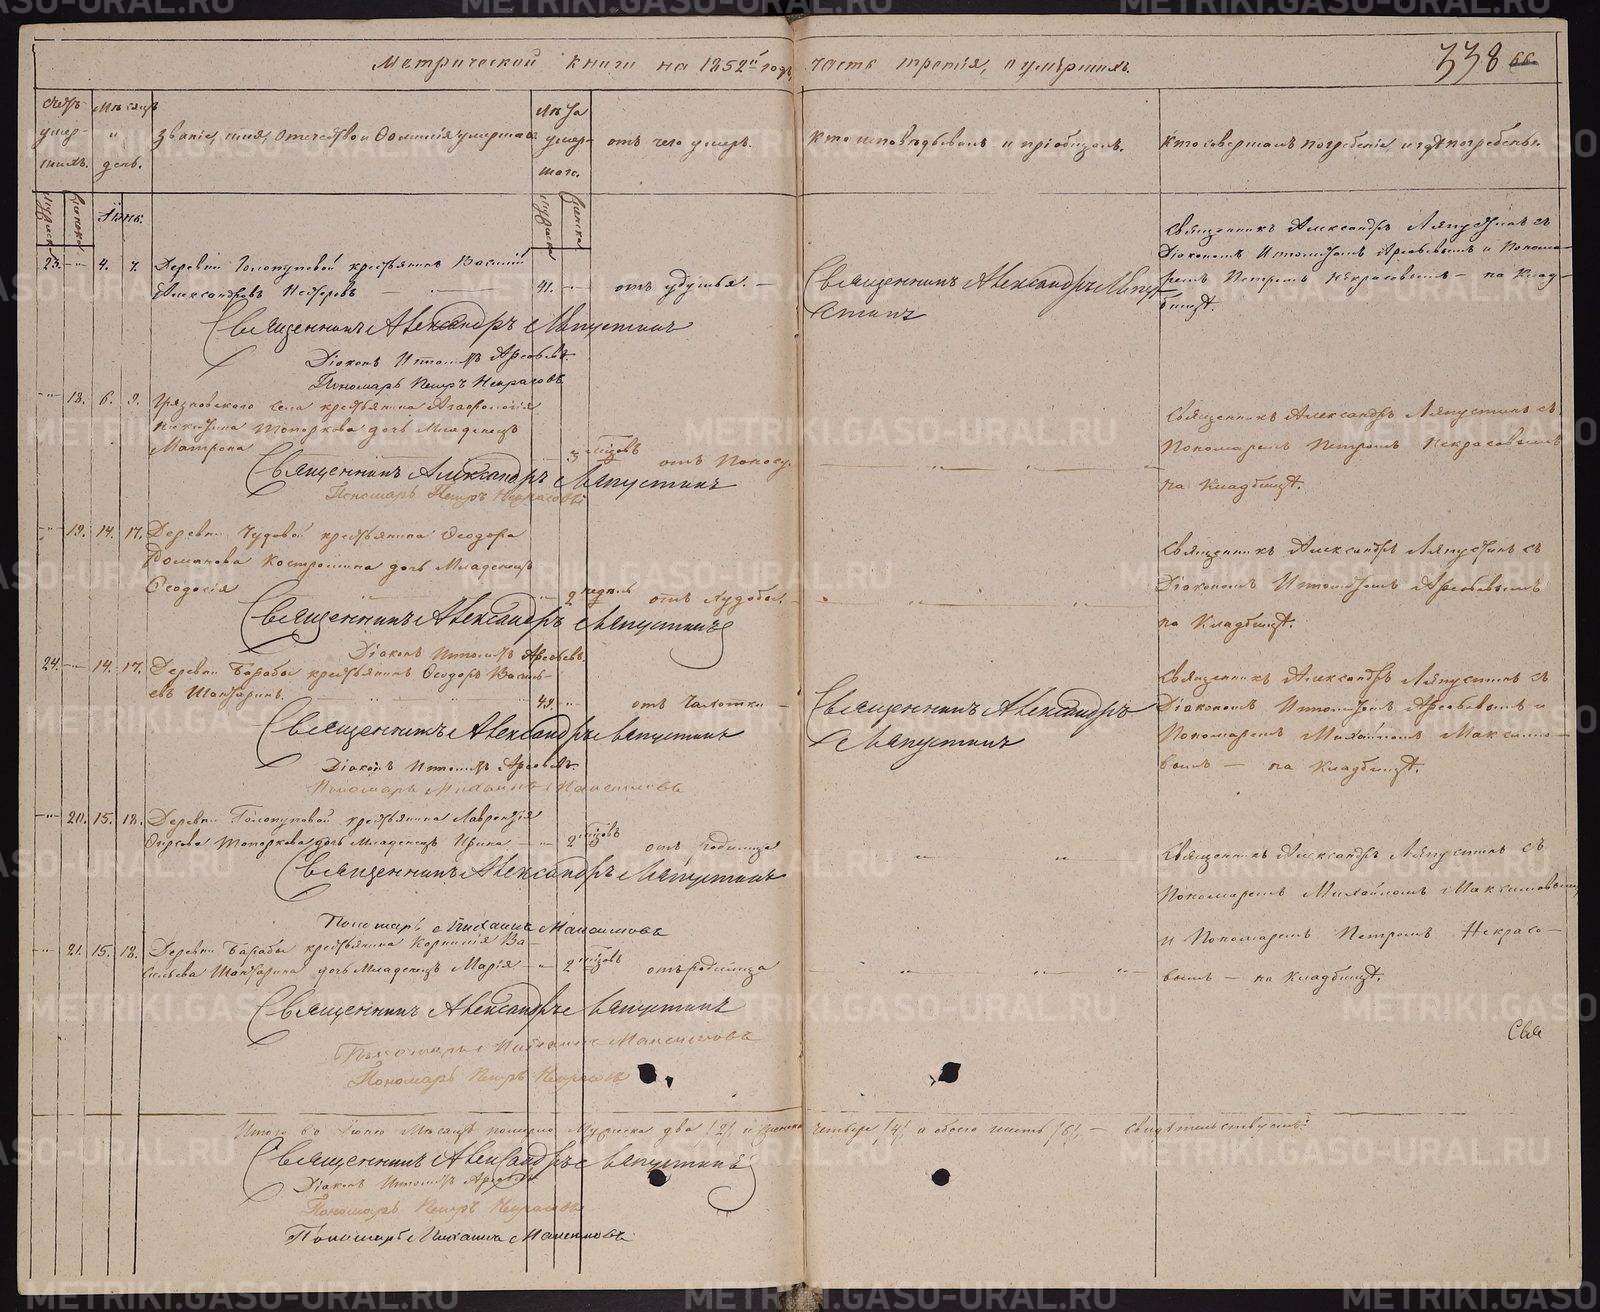 Метрической книги на 1852й годъ, часть третія, о умершихъ.
338 66.
Счетъ умер-шихъ.
Мѣсяцъ и день.
Званіе, имя, отчество и Фамилія умершаго
Лѣта умер-шаго.
отъ чего умеръ.
Кто исповѣдывалъ и пріобщалъ.
Кто совершалъ погребеніе и гдѣ погребены.
мужеска
женска
Іюнь.
мужеска
женска
23. 4. 7. Деревни Голопуповой крестьянинъ Василій
Александровъ 41. отъ удушья.
Священникъ Александръ Ляпустинъ
Діаконъ Ипполитъ Арефьевъ
Пономарь Петръ Некрасовъ
Священникъ Александръ Ляпу-
стинъ
Священникъ Александръ Ляпустинъ съ
Діакономъ Ипполитомъ Арефьевымъ и Понома-
ремъ Петромъ Некрасовымъ — на Клад-
бищѣ.
18. 6. 9. Грязновского села крестьянина
Никитина Топоркова дочь Младенецъ
Матрона 3 мѣсяцовъ отъ Поносу.
Священникъ Александръ Ляпустинъ
Пономарь Петръ Некрасовъ
Священникъ Александръ Ляпустинъ съ
Пономаремъ Петромъ Некрасовымъ
на Кладбищѣ.
19. 14. 17. Деревни Чудовой крестьянина Ѳеодора
Романова Костромина дочь Младенецъ
Ѳеодосія 2 недѣль отъ Худобы.
Священникъ Александръ Ляпустинъ
Діаконъ Ипполитъ Арефьевъ
Священникъ Александръ Ляпустинъ съ
Діакономъ Ипполитомъ Арефьевымъ
на Кладбищѣ.
24. 14. 17. Деревни Барабы крестьянинъ Ѳеодоръ Василь-
евъ Шангаринъ. 49. отъ Чахотки
Священникъ Александръ Ляпустинъ
Діаконъ Ипполитъ Арефьевъ
Пономарь Михаилъ Максимовъ
Священникъ Александръ
Ляпустинъ
Священникъ Александръ Ляпустинъ съ
Діакономъ Ипполитомъ Арефьевымъ и
Пономаремъ Михайломъ Максимо-
вымъ — на Кладбищѣ.
20. 15. 18. Деревни Голопуповой крестьянина Лаврентія
Фирсова Топоркова дочь Младенецъ Ирина 2 мѣсяцовъ отъ Родимца
Священникъ Александръ Ляпустинъ
Пономарь Михаилъ Максимовъ
Священникъ Александръ Ляпустинъ съ
Пономаремъ Михайломъ Максимовымъ
и Пономаремъ Петромъ Некрасо-
вымъ — на Кладбищѣ.
21. 15. 18. Деревни Барабы крестьянина Корнилія Ва-
сильева Шангарина дочь Младенецъ Марія 2 мѣсяцовъ отъ родимца
Священникъ Александръ Ляпустинъ
Пономарь Михаилъ Максимовъ
Пономарь Петръ Некрасовъ
Свя
Итого въ Іюнѣ Мѣсяцѣ померло Мужеска два /2/ и женска четыре /4/, а обоего шесть /6/, — свидѣтельствуемъ:
Священникъ Александръ Ляпустинъ
Діаконъ Ипполитъ Арефьевъ
Пономарь Петръ Некрасовъ
Пономарь Михаилъ Максимовъ
METRIKI.GASO-URAL.RU